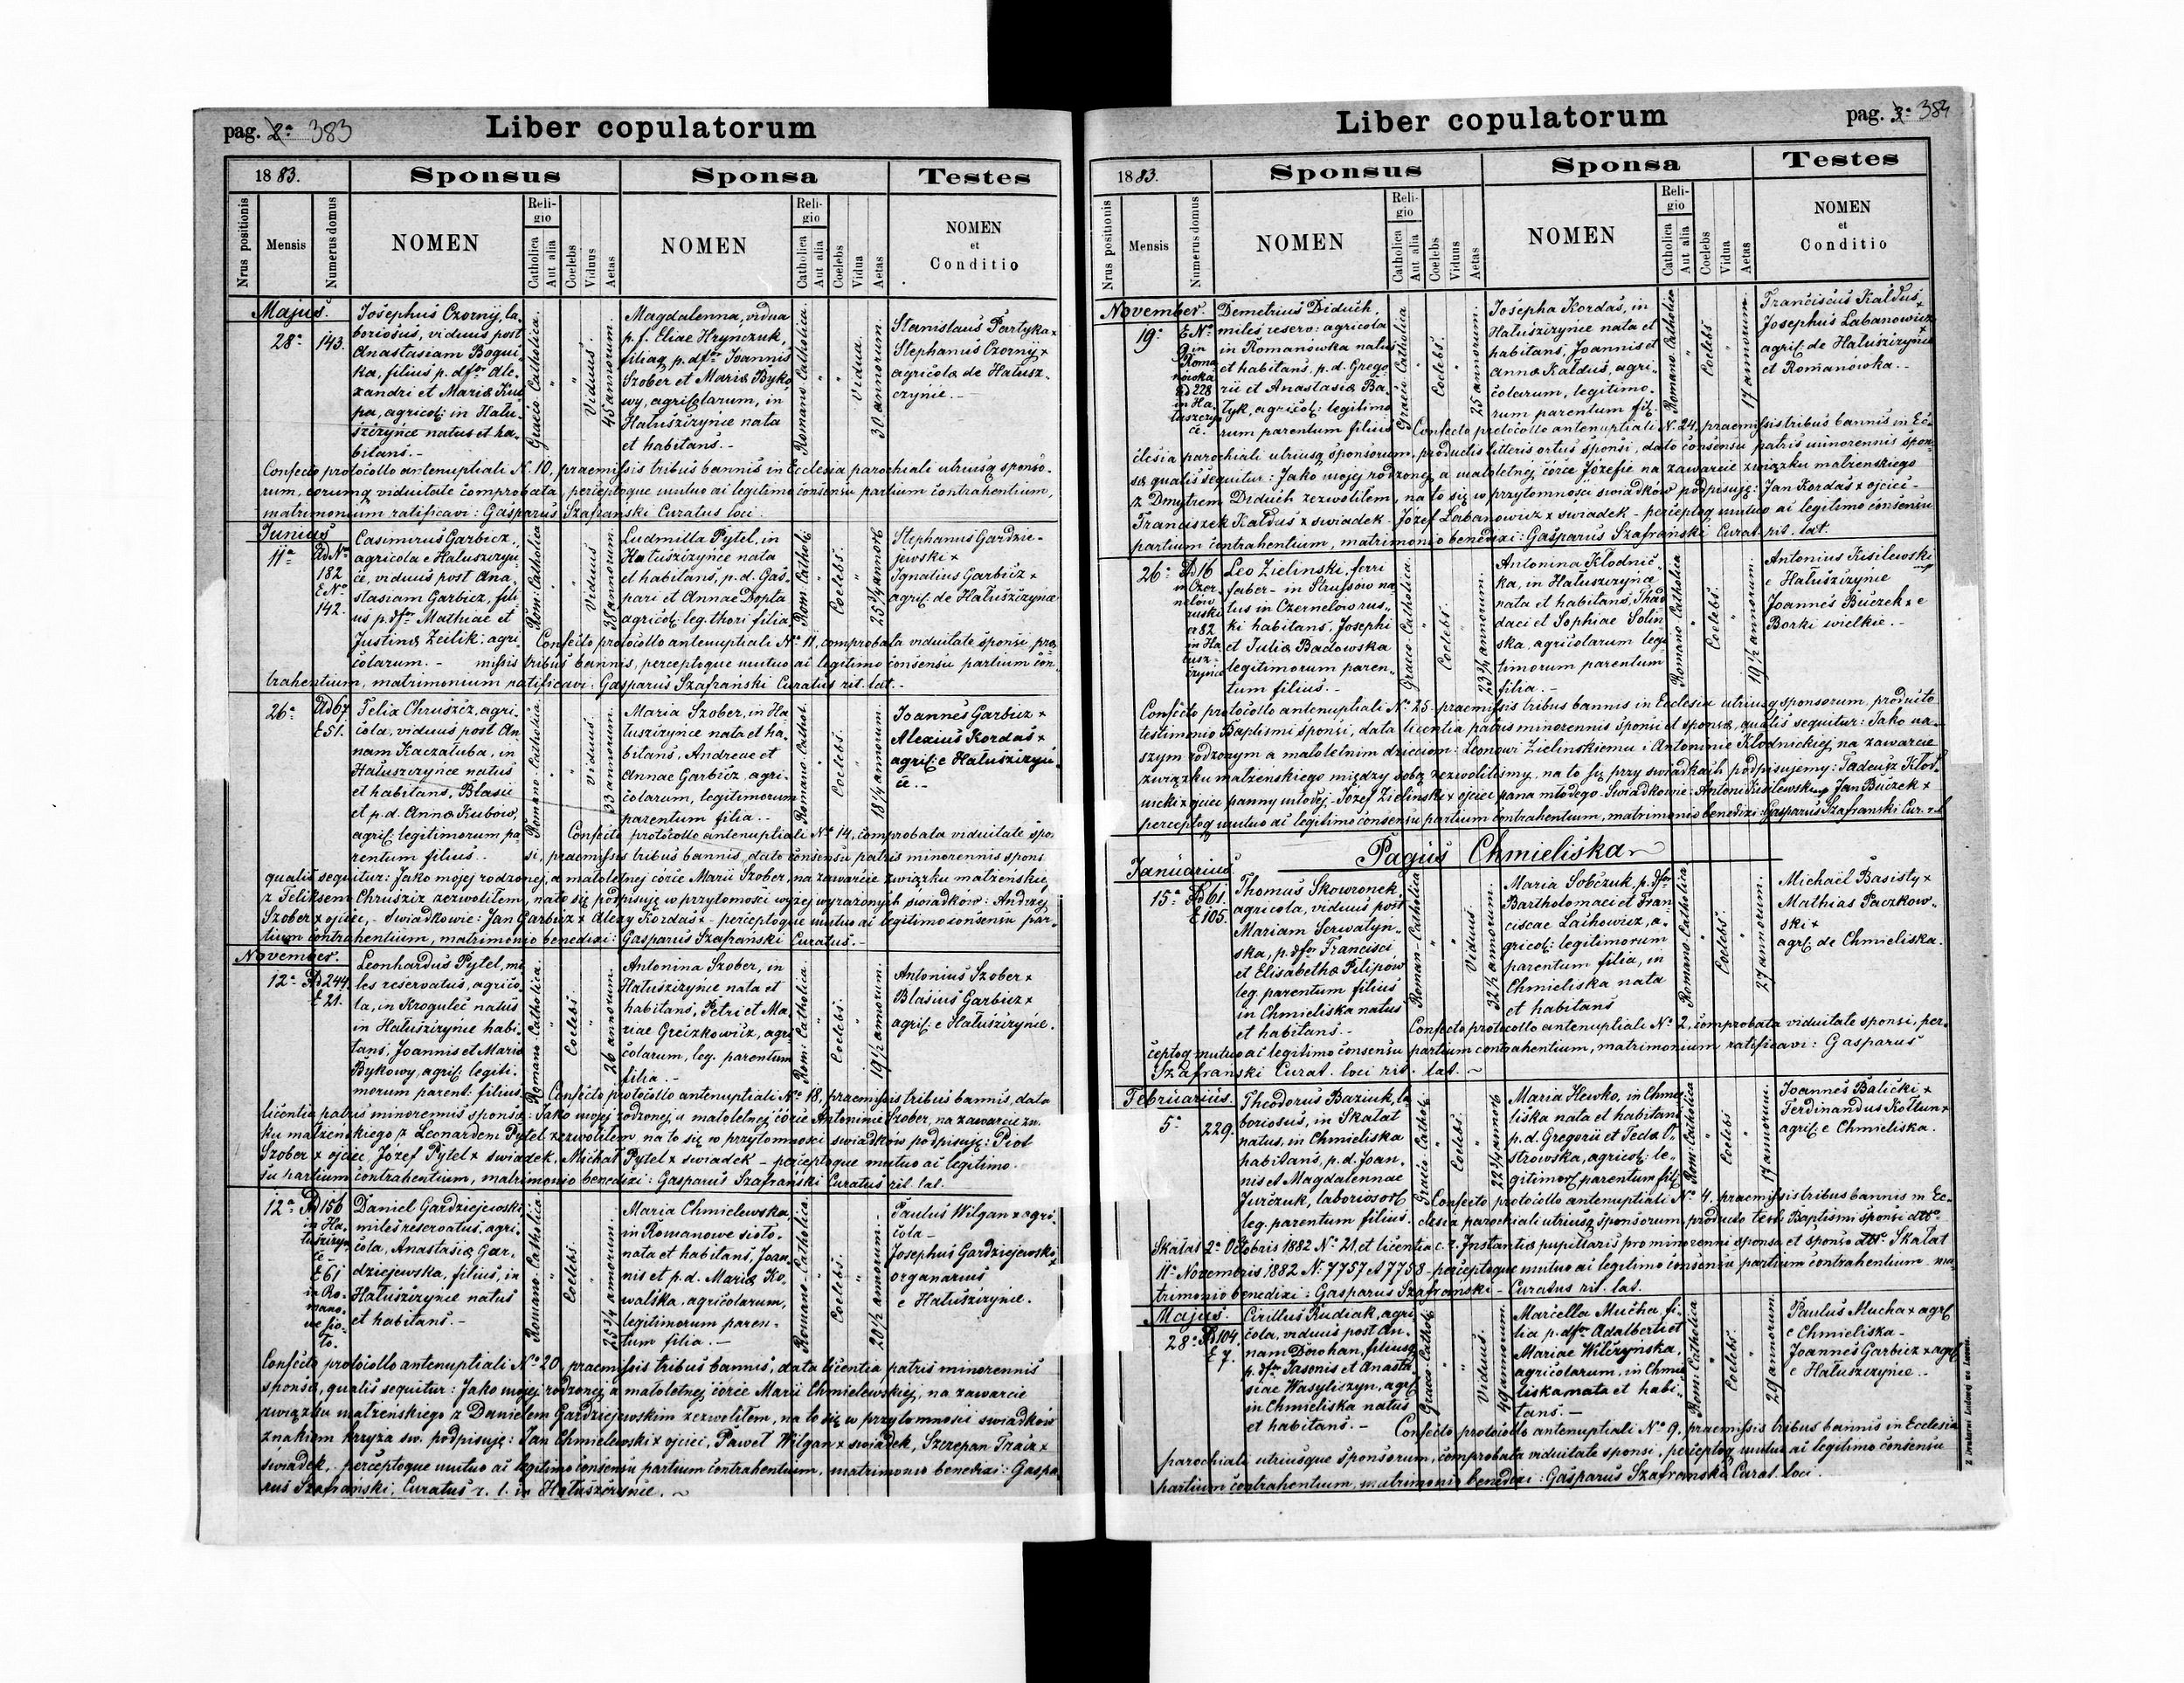 pag. 2a 383
Liber copulatorum
1883.
Sponsus
Sponsa
Testes
Nrus positionis
Mensis
Numerus domus
NOMEN
Religio
Catholica
Aut alia
Coelebs
Viduus
Aetas
NOMEN
Religio
Catholica
Aut alia
Coelebs
Vidua
Aetas
NOMEN
et
Conditio
Majus.
28a
143.
Josephus Czornÿ, la-
boriosus, viduus post
Anastasiam Bogui-
ka, filius p. dfor Ale-
xandri et Mariæ Kru-
pa, agricol: in Hału-
szczyńce natus et ha-
bitans.-
Graeco Catholica.
"
"
Viduus
45 annorum.
Magdalenna, vidua
p. f. Eliae Hrynczuk,
filiaq p. dfor Joannis
Szober et Mariæ Byko-
wy, agricolarum, in
Hałuszczyńce nata
et habitans.-
Romano Catholica.
"
"
Vidua.
30 annorum.
Stanislaus Partyka x
Stephanus Czornÿ x
agricolæ de Hałusz-
czyńce.-
Confecto protocollo antenuptiali N. 10, praemissis tribus bannis in Ecclesia parochiali utriusq sponso-
rum, eorumq viduitate comprobata, perceptoque mutuo ac legitimo consensu partium contrahentium,
matrimonium ratificavi: Gasparus Szafranski Curatus loci.
Junius
11a
Ad No
182
E No
142.
Casimirus Garbicz,
agricola e Hałuszczyń-
ce, viduus post Ana-
stasiam Garbicz, fili-
us p. dfor Mathiae et
Justinæ Zeilik: agri-
colarum.-
Rom: Catholica
"
"
Viduus
38 annorum.
Ludmilla Pytel, in
Hałuszczyńce nata
et habitans, p. d. Gas-
pari et Annae Dopta
agricol: leg. thori filia.
Rom: Cathol:
"
Coelebs.
"
25 3/4 annorum
Stephanus Gardzie-
jewski x
Ignatius Garbicz x
agric: de Hałuszczyńce
Confecto protocollo antenuptiali No 11, comprobata viduitate sponsi, præ-
missis tribus bannis, perceptoque mutuo ac legitimo consensu partium con-
trahentium, matrimonium ratificavi: Gasparus Szafranski Curatus rit. lat.-
26a
Ad 67.
E 51.
Felix Chruszcz, agri-
cola, viduus post An-
nam Kaczałuba, in
Hałuszczyńce natus
et habitans, Blasii
et p. d. Annæ Kubow,
agric: legitimorum pa-
rentum filius.-
Romano-Catholica.
"
"
Viduus
33 annorum.
Maria Szober, in Ha-
łuszczyńce nata et ha-
bitans, Andreae et
Annae Garbicz, agri-
colarum, legitimorum
parentum filia.-
Romano-Cathol.
"
Coelebs.
"
18 1/4 annorum.
Joannes Garbicz x
Alexius Kordas x
agric: e Hałuszczyń-
ce.-
Confecto protocollo antenuptiali No 14, comprobata viduitate spon-
si, praemissis tribus bannis, dato consensu patris minorennis sponsæ
qualis sequitur: Jako mojej rodzonej, a małoletnej córce Marii Szober, na zawarcie związku małżeńskiej
z Feliksem Chruścicz zezwolitem, na to się podpisuję w przytomości wyżej wyrażonych świadków: Andrzej
Szober x ojciec, - świadkowie: Jan Garbicz x Alexy Kordas x - perceptoque mutuo ac legitimo consensu par-
tium contrahentium, matrimonio benedixi: Gasparus Szafranski Curatus.-
November.
12a
Ad 244.
E 21.
Leonhardus Pytel, mi-
les reservatus, agrico-
la, in Krogulec natus
in Hałuszczyńce habi-
tans, Joannis et Mariæ
Bykowy, agric: legiti-
morum parent. filius.
Romano-Catholica.
"
Coelebs.
"
26 annorum.
Antonina Szober, in
Hałuszczyńce nata et
habitans, Petri et Ma-
riae Greczkowicz, agri-
colarum, leg. parentum
filia.-
Rom: Catholica.
"
Coelebs.
"
19 1/2 annorum.
Antonius Szober x
Blasius Garbicz x
agric: e Hałuszczyńce.
Confecto protocollo antenuptiali No 18, praemissis tribus bannis, data
licentia patris minorennis sponsæ: Jako mojej rodzonej a małoletnej córce Antoninie Szober, na zawarcie zw.
ku małżeńskiego z Leonardem Pytel zezwolitem, na to się w przytomności świadków podpisuję: Piotr
Szober x ojciec, Józef Pytel x świadek, Michał Pytel x świadek - perceptoque mutuo ac legitimo
su partium contrahentium, matrimonio benedixi: Gasparus Szafranski Curatus rit. lat.
12a
Ad 156
in Ha-
łuszczyn-
ce
E 61
in Ro-
mano-
we sio-
ło.
Daniel Gardziejewski
miles reservatus, agri-
cola, Anastasiæ Gar-
dziejewska, filius, in
Hałuszczyńce natus
et habitans.-
Romano-Catholica.
"
Coelebs
"
25 3/4 annorum.
Maria Chmielewska
in Romanowe sioło.
nata et habitans, Joan-
nis et p. d. Mariæ Ko-
walska, agricolarum,
legitimorum paren-
tum filia.-
Romano-Catholica.
"
Coelebs.
"
20 1/2 annorum.
Paulus Wilgan x agri-
cola-
Josephus Gardziejewski x
organarius
e Hałuszczyńce.
Confecto protocollo antenuptiali No 20, praemissis tribus bannis, data licentia patris minorennis
sponsæ, qualis sequitur: Jako mojej rodzonej a małoletnej córce Marii Chmielewskiej, na zawarcie
związku małżeńskiego z Danielem Gardziejewskim zezwolitem, na to się w przytomności świadków
znakiem krzyża św. podpisuję: Jan Chmielewski x ojciec, Paweł Wilgan x świadek, Szczepan Tracz x
świadek.- perceptoque mutuo ac legitimo consensu partium contrahentium, matrimonio benedixi: Gaspa-
rus Szafranski, Curatus r. l. in Hałuszczyńce.
Liber copulatorum
pag. 3a 384
1883.
Sponsus
Sponsa
Testes
Nrus positionis
Mensis
Numerus domus
NOMEN
Religio
Catholica
Aut alia
Coelebs
Viduus
Aetas
NOMEN
Religio
Catholica
Aut alia
Coelebs
Vidua
Aetas
NOMEN
et
Conditio
November.
19a
E No
9 in
Roma-
nówka
Ad 228
in Ha-
łuszczyn-
ce.
Demetrius Diduch,
miles reserv. agricola
in Romanówka natus
et habitans, p. d. Grego-
rii et Anastasiæ Ba-
łyk, agricol: legitimo-
rum parentum filius
Graeco Catholica.
"
Coelebs.
"
25 annorum.
Josepha Kordas, in
Hałuszczyńce nata et
habitans, Joannis et
Annæ Kałdus, agri-
colarum, legitimo-
rum parentum fil.
Romano-Catholica
"
Coelebs.
"
17 annorum.
Franciscus Kałdus x
Josephus Labanowicz x
agric: de Hałuszczyńce
et Romanówka.-
Confecto protocollo antenuptiali N. 24, praemissis tribus bannis in Ec-
clesia parochiali utriusq sponsorum, productis litteris ortus sponsi, dato consensu patris minorennis spon-
sæ qualis sequitur: Jako mojej rodzonej a małoletnej córce Józefie na zawarcie związku małżenskiego
z Dmytrem Diduch zezwolitem, na to się w przytomności świadków podpisuję: Jan Kordas x ojciec -
Franciszek Kałdus x swiadek - Józef Labanowicz x swiadek - perceptoq mutuo ac legitimo consensu
partium contrahentium, matrimonio benedixi: Gasparus Szafranski Curat. rit. lat.
26a
Ad 16
in Czer-
nelów
ruski
et 82
in Ha-
łusz-
czyńce
Leo Zielinski, ferri
faber- in Strussów na-
tus in Czernelow rus-
ki habitans, Josephi
et Juliæ Badowska
legitimorum paren-
tum filius.-
Graeco-Catholica.
"
Coelebs.
"
23 3/4 annorum.
Antonina Kłodnic-
ka, in Hałuszczyńce
nata et habitans, Thad-
daei et Sophiae Solin-
ska, agricolarum legi-
timorum parentum
filia.-
Romano-Catholica
"
Coelebs.
"
19 1/2 annorum.
Antonius Kisilewski
e Hałuszczyńce
Joannes Buczek x e
Borki wielkie.-
Confecto protocollo antenuptiali No 25. praemissis tribus bannis in Ecclesia utriusq sponsorum, producto
testimonio Baptismi sponsi, data licentia patris minorennis sponsi et sponsæ, qualis sequitur: Jako na-
szym rodzonym a małoletnim dzieciom: Leonowi Zielinskiemu i Antoninie Kłodnickiej na zawarcie
związku małżenskiego między sobą zezwolilismy, na to się przy swiadkach podpisujemy: Tadeusz Kłod-
nicki x ojciec panny młodej - Jozef Zielinski x ojciec pana młodego. Swiadkowie: Antoni Kisilewski Jan Buczek x
perceptoq mutuo ac legitimo consensu partium contrahentium, matrimonio benedixi: Gasparus Szafranski Cur. r. l.
Pagus Chmieliska
Januarius
15a
Ad 61.
E 105.
Thomas Skowronek
agricola, viduus post
Mariam Serwatyn-
ska, p. dfor Francisci
et Elisabethæ Pilipów
leg. parentum filius
in Chmieliska natus
et habitans.-
Roman-Catholica
"
"
Viduus.
32 1/2 annorum.
Maria Sobczuk, p. dfor
Bartholomaei et Fran-
ciscae Lachowicz, a-
gricol: legitimorum
parentum filia, in
Chmieliska nata
et habitans
Romano-Catholica
"
Coelebs.
"
27 annorum.
Michael Basisty x
Mathias Paczkow-
ski x
agric: de Chmieliska.
Confecto protocollo antenuptiali No 2, comprobata viduitate sponsi, per-
ceptoq mutuo ac legitimo consensu partium contrahentium, matrimonium ratificavi: Gasparus
Szafranski Curat. loci rit. lat.
Februarius.
5a
229.
Theodorus Baziuk, la-
boriosus, in Skałat
natus, in Chmieliska
habitans, p. d. Joan-
nis et Magdalennae
Jurczuk, laboriosor
leg. parentum filius.
Graeco-Cathol:
"
Coelebs.
"
22 3/4 annorum
Maria Hewko, in Chmie-
liska nata et habitans
p. d. Gregorii et Teclæ O-
strowska, agricol: le-
gitimor parentum fil
Rom: Catholica
"
Coelebs
"
17 annorum.
Joannes Balicki x
Ferdinandus Kołtun x
agric: e Chmieliska.
Confecto protocollo antenuptiali No 4. praemissis tribus bannis in Ec-
clesia parochiali utriusq sponsorum, producto testi Baptismi sponsi ddto
Skałat 2a Octobris 1882 No 21, et licentia c. r. Instantiæ pupillaris pro minorenni sponsa et sponso ddto Skałat
11a Novembris 1882 N: 7757 et 7758 - perceptoque mutuo ac legitimo consensu partium contrahentium ma-
trimonio benedixi: Gasparus Szafranski - Curatus rit. lat.
Majus.
28a
Ad 104
E 7.
Cirillus Rudiak, agri-
cola, viduus post An-
nam Dorohan, filiusq
p. dfor Jasonis et Anasta-
siae Wasyliszyn, agric
in Chmieliska natus
et habitans.-
Graeco-Cathol:
"
"
Viduus.
49 annorum.
Marcella Mucha, fi-
lia p. dfor Adalberti et
Mariae Wilczynska,
agricolarum, in Chmie-
liska nata et habi-
tans.-
Rom: Catholica
"
Coelebs.
"
29 annorum.
Paulus Mucha x agric
e Chmieliska-
Joannes Garbicz x agric
e Hałuszczyńce.-
Confecto protocollo antenuptiali No 9. praemissis tribus bannis in Ecclesia
parochiali utriusque sponsorum, comprobata viduitate sponsi, perceptoq mutuo ac legitimo consensu
partium contrahentium, matrimonio benedixi: Gasparus Szafranski Curat. loci.
Z Drukarni Ludowej we Lwowie.